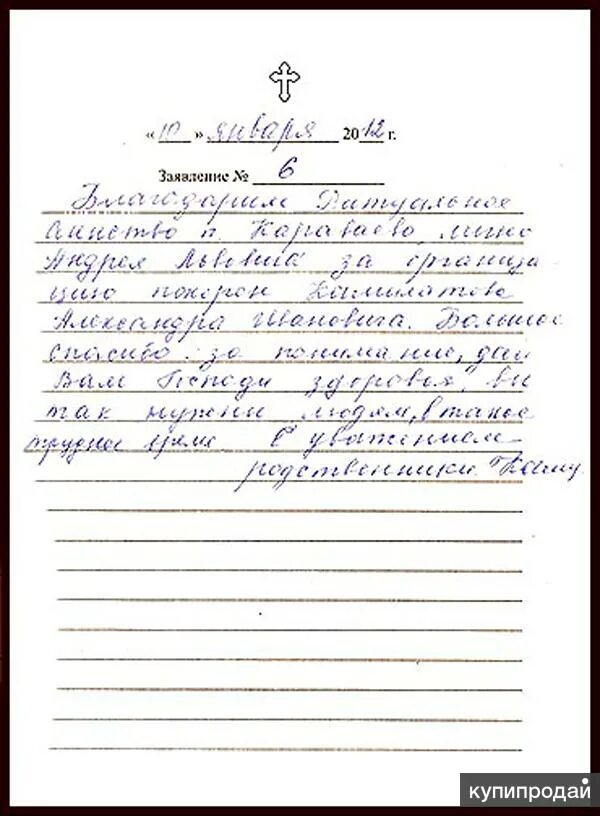 « 10 » января 2012 г.
Заявление № 6
Благодарим Ритуальное
п. Караваево, лично
Андрея Львовича за организа
цию похорон
Александра Ивановича. Большое
спасибо за понимание, дай
Вам Господи здоровья, вы
так нужны людям, в такое
трудное время. С уважением
родственники
купипродай